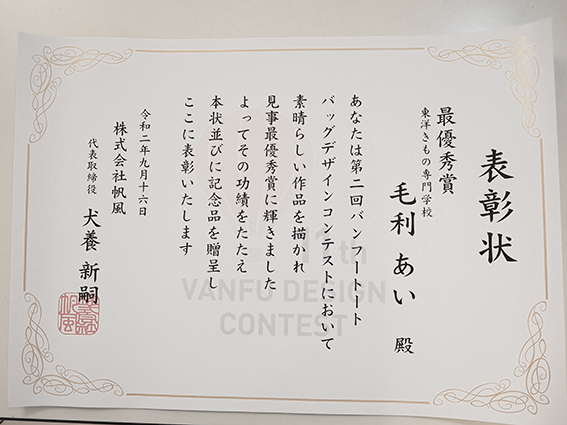 表彰状
最優秀賞
東洋きもの専門学校
毛利 あい 殿
あなたは第二回バンフートート
バッグデザインコンテストにおいて
素晴らしい作品を描かれ
見事最優秀賞に輝きました
よってその功績をたたえ
本状並びに記念品を贈呈し
ここに表彰いたします
令和二年九月十六日
株式会社帆風
代表取締役 犬養 新嗣
th
VANFU DESIGN
CONTEST